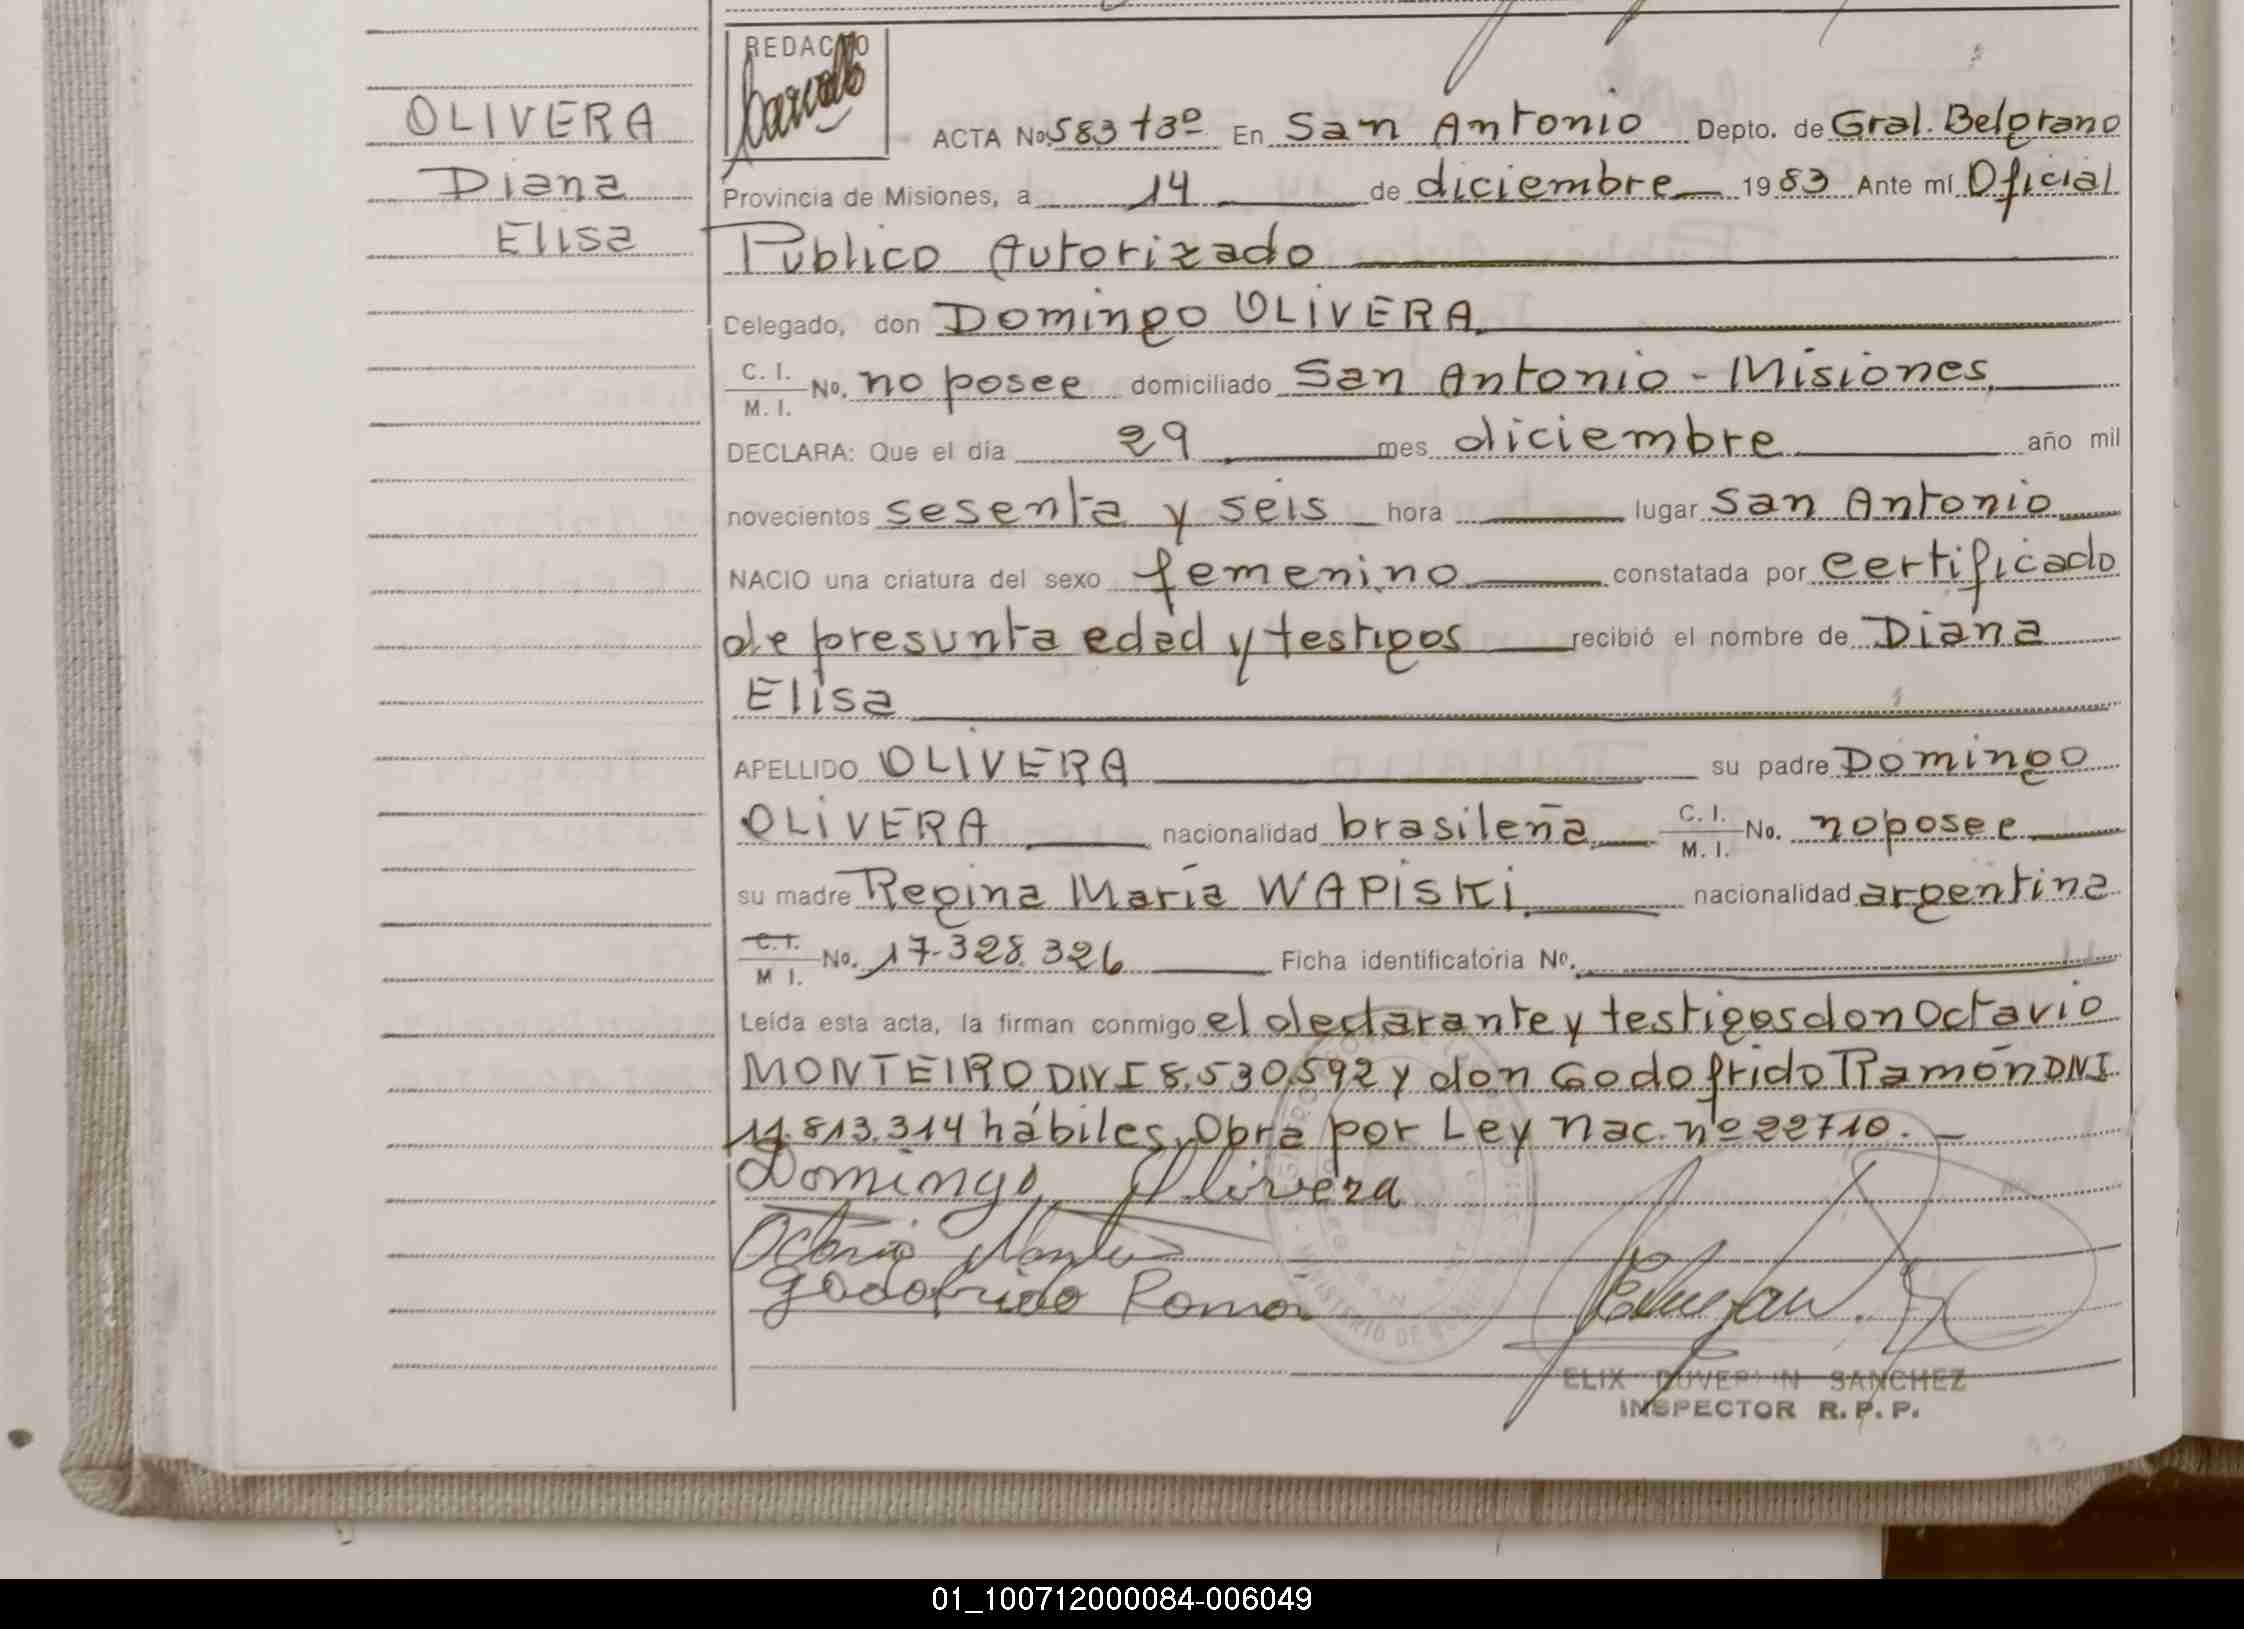 REDACTO
OLIVERA
Diana
Elisa
ACTA No. 583 t3º En San Antonio Depto. de Gral. Belgrano
Provincia de Misiones, a 14 de diciembre 1983 Ante mí Oficial
Publico Autorizado
Delegado, don Domingo OLIVERA
C. I. / M. I. No. no posee domiciliado San Antonio - Misiones,
DECLARA: Que el día 29 mes diciembre año mil
novecientos sesenta y seis hora lugar San Antonio
NACIO una criatura del sexo femenino constatada por certificado
de presunta edad y testigos recibió el nombre de Diana
Elisa
APELLIDO OLIVERA su padre Domingo
OLIVERA nacionalidad brasileña C. I. / M. I. No. no posee
su madre Regina María WAPISKI nacionalidad argentina
C. I. / M I. No. 17.328.326 Ficha identificatoria No.
Leída esta acta, la firman conmigo el declarante y testigos don Octavio
MONTEIRO DNI 8.530.592 y don Godofrido Ramón DNI
11.813.314 hábiles, Obra por Ley Nac. nº 22710. -
Domingo Olivera
Octavio
Godofrido Ramón
SANCHEZ
INSPECTOR R. P. P.
01_100712000084-006049